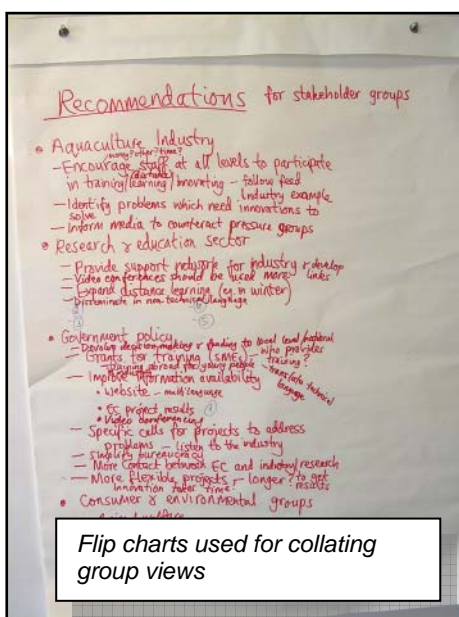 Recommendations for stakeholder groups
• Aquaculture Industry
money? other? time?
- Encourage staff at all levels to participate
(distance)
in training/learning/innovating - follow feed
industry example
- Identify problems which need innovations to
solve
- Inform media to counteract pressure groups
• Research & education sector
- Provide support network for industry & develop
links
- Video conferences should be used more
- Expand distance learning (eg. in winter)
- Disseminate in non-technical language
• Government policy
- Develop decision-making & funding to local level/national
- Grants for training (SMEs) - who provides
training?
- training abroad for young people
- translate technical
language
- Improve information availability
• Website - multi language
• EC project results
• Video conferencing
- Specific calls for projects to address
problems - listen to the industry
- Simplify bureaucracy
- More contact between EC and industry/research
- More flexible projects - longer? to get
results
Innovation takes time!
• Consumer & environmental groups
Flip charts used for collating
group views